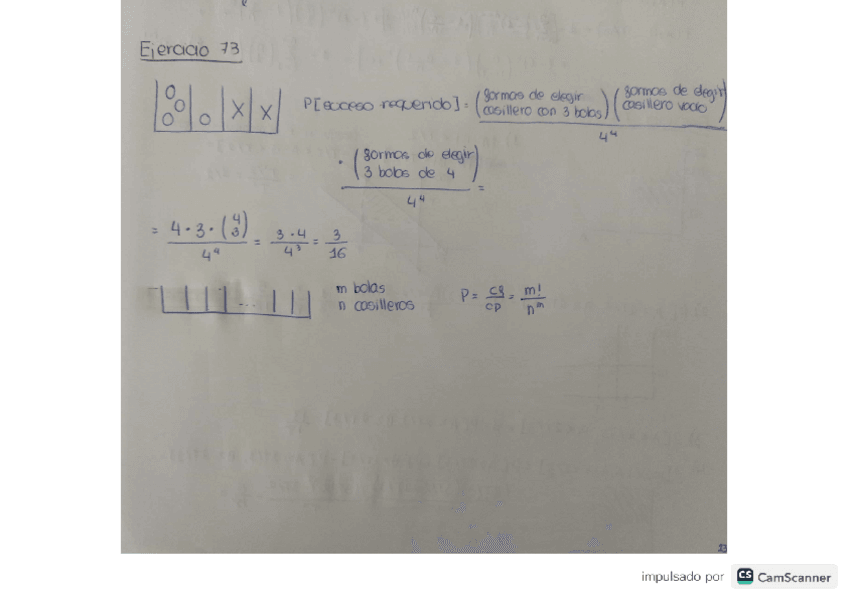 Ejercicio 73
P[suceso requerido] = (formas de elegir casillero con 3 bolas) (formas de elegir casillero vacío)
4^4
· (formas de elegir 3 bolas de 4) =
4^4
= 4·3·(4 3) / 4^4 = 3·4 / 4^3 = 3/16
m bolas
n casilleros
P = cf/cp = m!/n^m
23
impulsado por CS CamScanner